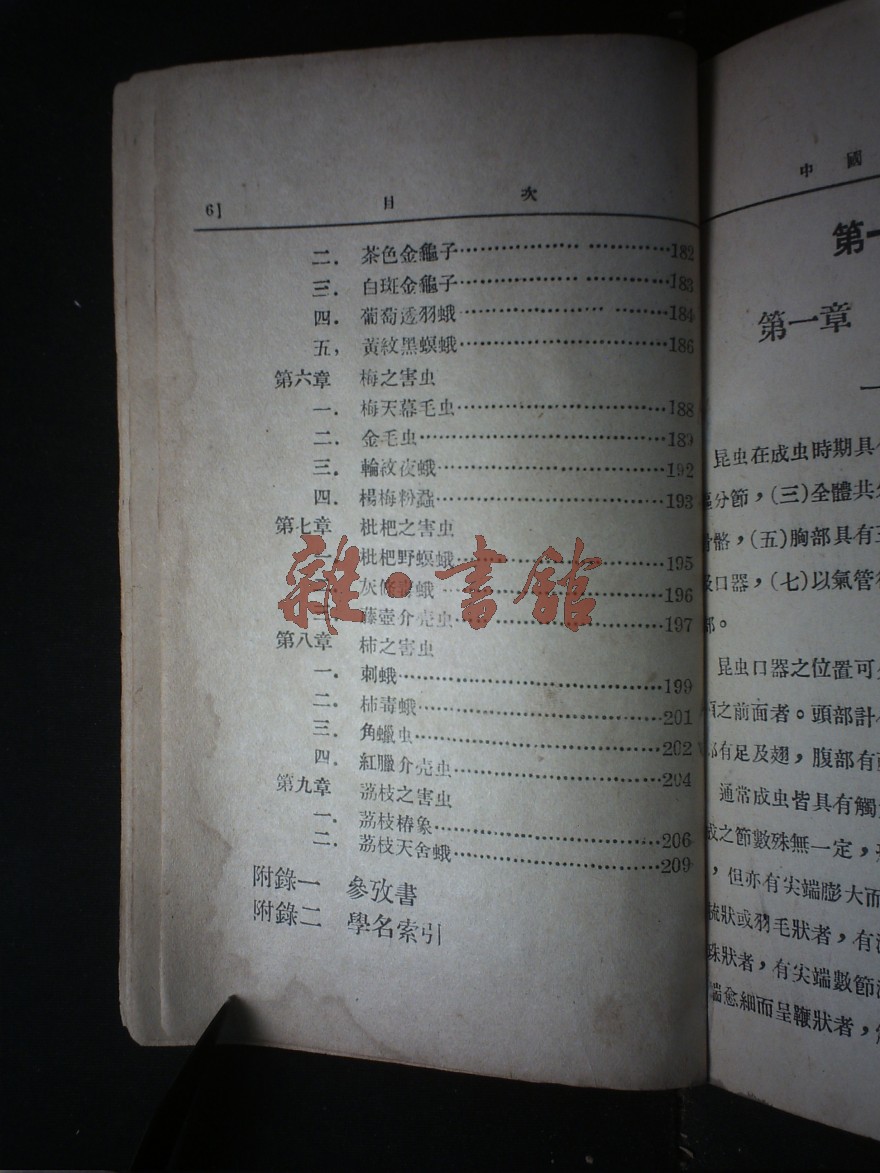 6]　目　次
二．茶色金龜子………………………………182
三．白斑金龜子………………………………183
四．葡萄透羽蛾………………………………184
五，黃紋黑螟蛾………………………………186
第六章　梅之害虫
一．梅天幕毛虫………………………………188
二．金毛虫……………………………………189
三．輪紋夜蛾…………………………………192
四．楊梅粉蝨…………………………………193
第七章　枇杷之害虫
一．枇杷野螟蛾………………………………195
灰條毒蛾………………………………196
藤壺介壳虫………………………………197
第八章　柿之害虫
一．刺蛾………………………………………199
二．柿毒蛾……………………………………201
三．角蠟虫……………………………………202
四．紅臘介壳虫………………………………204
第九章　荔枝之害虫
一．荔枝椿象…………………………………206
二．荔枝天舍蛾………………………………209
附錄一　參攷書
附錄二　學名索引
雜·書館
中國
第一
第一章
昆虫在成虫時期具
區分節，(三)全體共
骨骼，(五)胸部具有
吸口器，(七)以氣管
部。
昆虫口器之位置可
頭之前面者。頭部計
部有足及翅，腹部有
通常成虫皆具有觸
成之節數殊無一定，
，但亦有尖端膨大而
梳狀或羽毛狀者，有
珠狀者，有尖端數節
端愈細而呈鞭狀者，